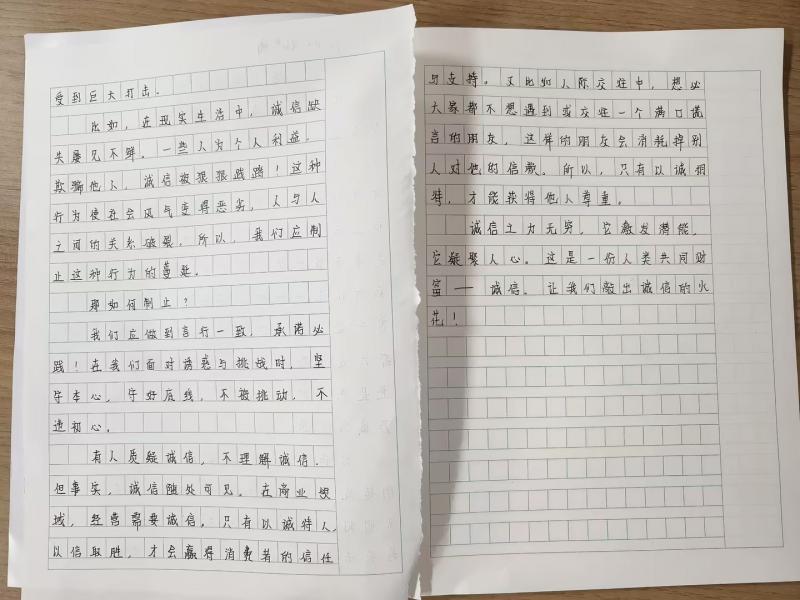 受到巨大打击。
比如,在现实生活中,诚信缺
失屡见不鲜。一些人为个人利益。
欺骗他人,诚信被狠狠践踏!这种
行为使社会风气变得恶劣,人与人
之间的关系破裂。所以,我们应制
止这种行为的蔓延。
那如何制止?
我们应做到言行一致,承诺必
践!在我们面对诱惑与挑战时,坚
守本心,守好底线,不被挑动,不
违初心。
有人质疑诚信,不理解诚信.
但事实,诚信随处可见。在商业领
域,经营需要诚信。只有以诚待人,
以信取胜,才会赢得消费者的信任
与支持。又比如人际交往中,想必
大家都不想遇到或交往一个满口谎
言的朋友,这样的朋友会消耗掉别
人对他的信赖。所以,只有以诚相
待,才能获得他人尊重。
诚信之力无穷,它激发潜能,
它凝聚人心。这是一份人类共同财
富——诚信。让我们敲出诚信的火
花!